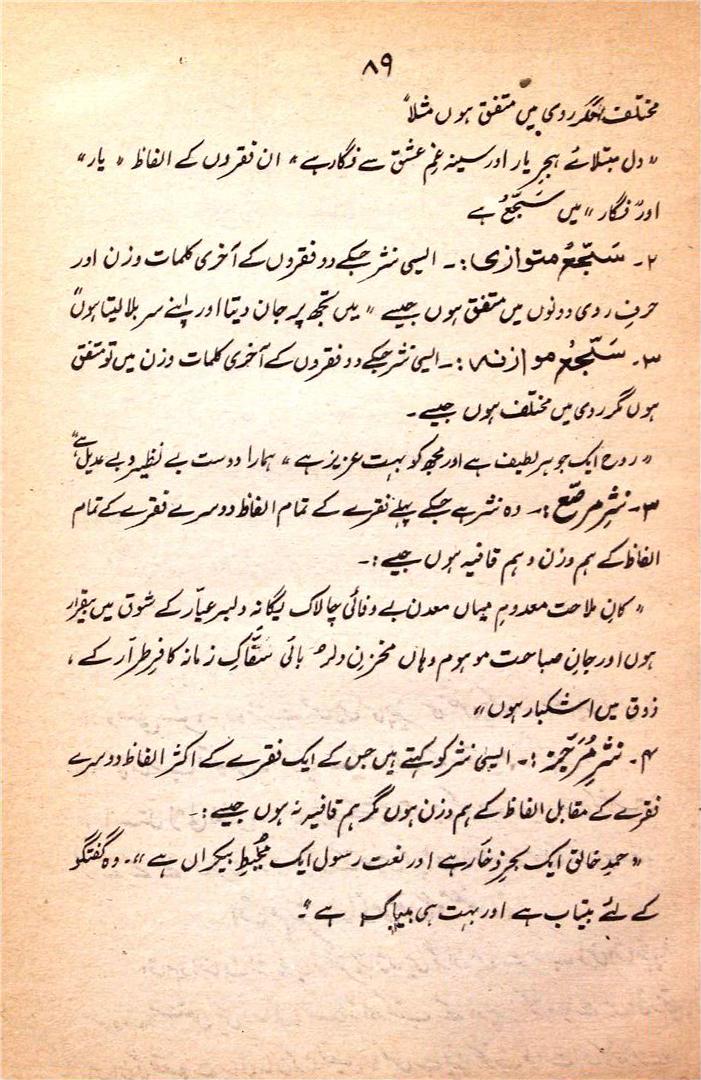 ۸۹
مختلف مگر روی میں متفق ہوں مثلاً
"دل مبتلائے ہجرِ یار اور سینہ غمِ عشق سے فگار ہے" ان فقروں کے الفاظ "یار"
اور "فگار" میں سَجّعُ ہے
۲۔ سَجّعُ متوازی:۔ ایسی نثر جسکے دو فقروں کے آخری کلمات وزن اور
حرفِ روی دونوں میں متفق ہوں جیسے "میں تجھ پر جان دیتا اور اپنے سر بلا لیتا ہوں"
۳۔ سَجّعُ موازنہ:۔ ایسی نثر جسکے دو فقروں کے آخری کلمات وزن میں تو متفق
ہوں مگر روی میں مختلف ہوں جیسے۔
"روح ایک جوہر لطیف ہے اور مجھ کو بہت عزیز ہے" ہمارا دوست بے نظیر و بے عدیل ہے"
۳۔ نثرِ مرصّع:۔ وہ نثر ہے جسکے پہلے فقرے کے تمام الفاظ دوسرے فقرے کے تمام
الفاظ کے ہم وزن و ہم قافیہ ہوں جیسے:۔
"کانِ ملاحت معدومِ میاں معدن بے وفائی چالاک یگانہ دلبر عیّار کے شوق میں بیقرار
ہوں اور جانِ صباحت موہوم وہاں مخزنِ دلربائی سَفّاکِ زمانہ کافر طرّار کے،
ذوق میں اشکبار ہوں"
۴۔ نثرِ مُرَجّز:۔ ایسی نثر کو کہتے ہیں جس کے ایک فقرے کے اکثر الفاظ دوسرے
فقرے کے مقابل الفاظ کے ہم وزن ہوں مگر ہم قافیہ نہ ہوں جیسے:۔
"حمدِ خالق ایک بحرِ ذخّار ہے اور نعت رسول ایک مُحیطِ بیکراں ہے"۔ وہ گفتگو
کے لئے بیتاب ہے اور بہت ہی بیباک ہے"۔